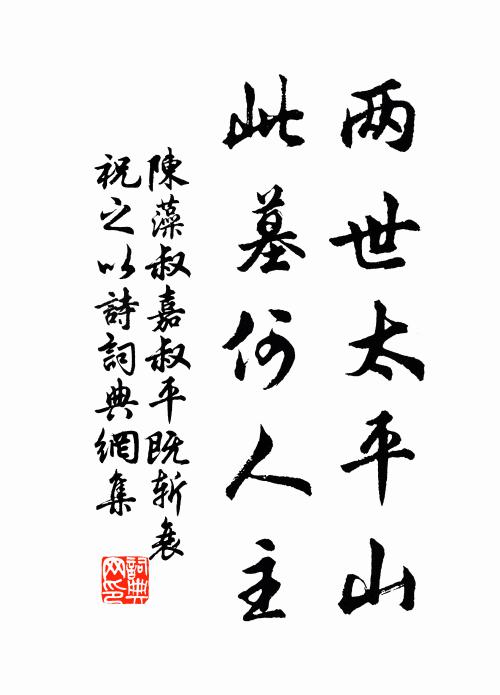 两世太平山
此墓何人主
陳藻叔嘉叔平既斬衰
祝之以詩詞典網集
詞典网印